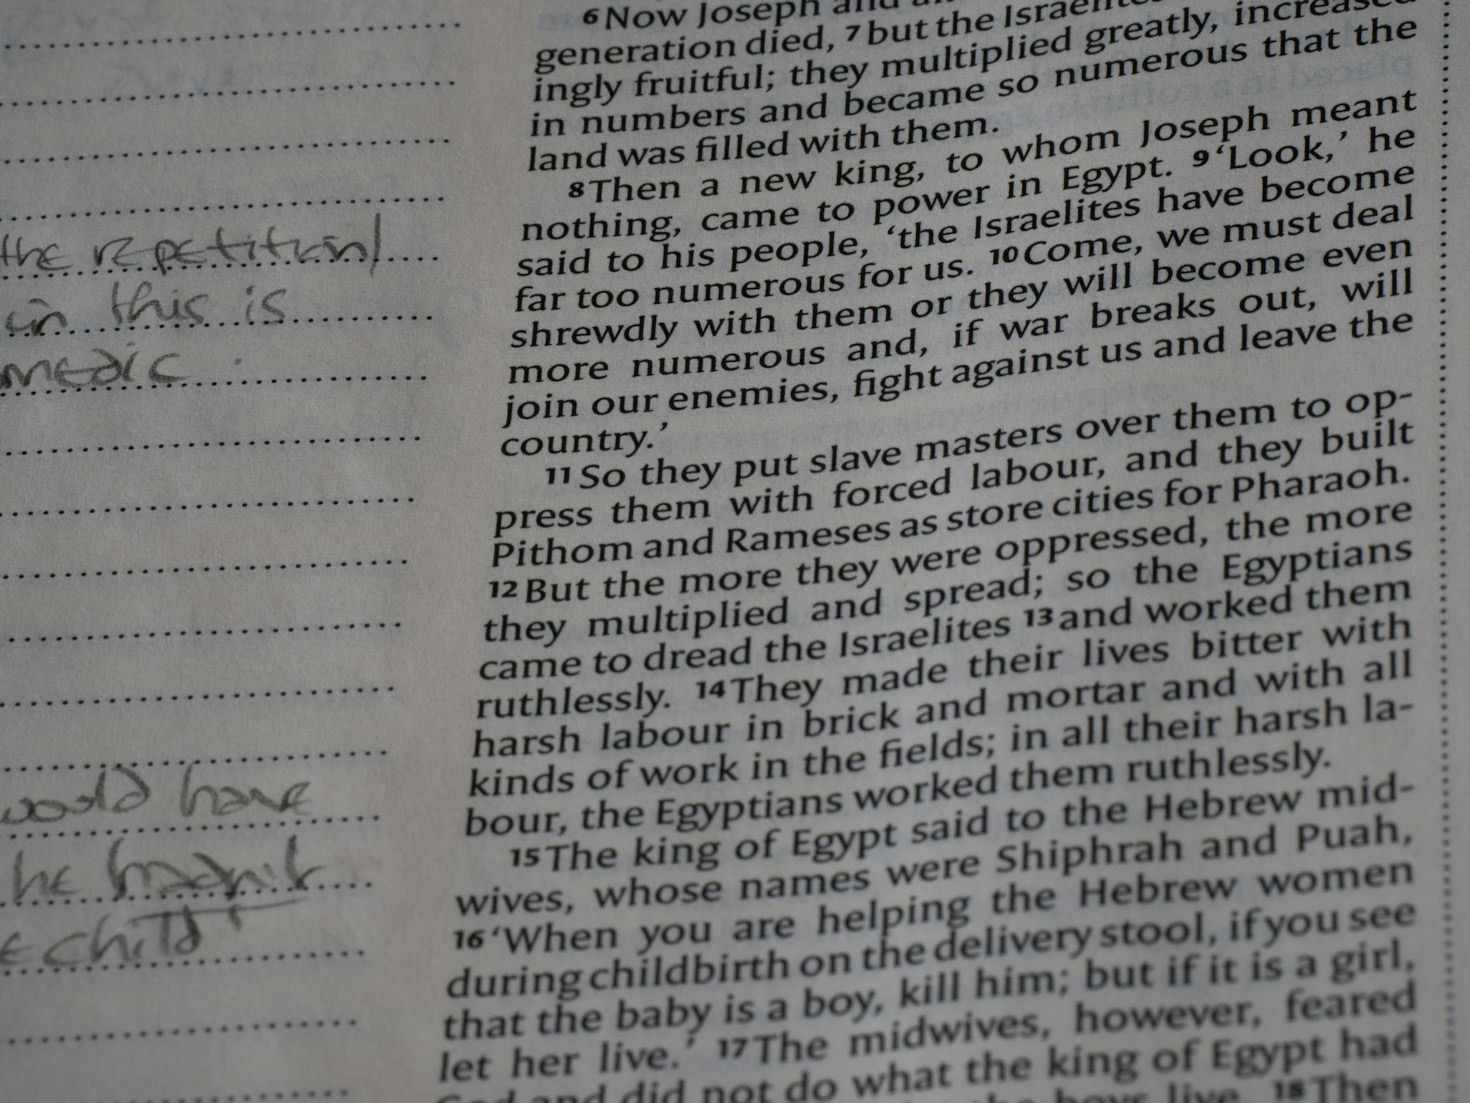 the repetition
in this is
would have
child
6 Now Joseph and
generation died, 7 but the Israelites
ingly fruitful; they multiplied greatly, increased
in numbers and became so numerous that the
land was filled with them.
8 Then a new king, to whom Joseph meant
nothing, came to power in Egypt. 9 ‘Look,’ he
said to his people, ‘the Israelites have become
far too numerous for us. 10 Come, we must deal
shrewdly with them or they will become even
more numerous and, if war breaks out, will
join our enemies, fight against us and leave the
country.’
11 So they put slave masters over them to op-
press them with forced labour, and they built
Pithom and Rameses as store cities for Pharaoh.
12 But the more they were oppressed, the more
they multiplied and spread; so the Egyptians
came to dread the Israelites 13 and worked them
ruthlessly. 14 They made their lives bitter with
harsh labour in brick and mortar and with all
kinds of work in the fields; in all their harsh la-
bour, the Egyptians worked them ruthlessly.
15 The king of Egypt said to the Hebrew mid-
wives, whose names were Shiphrah and Puah,
16 ‘When you are helping the Hebrew women
during childbirth on the delivery stool, if you see
that the baby is a boy, kill him; but if it is a girl,
let her live.’ 17 The midwives, however, feared
God and did not do what the king of Egypt had
the boys live. 18 Then